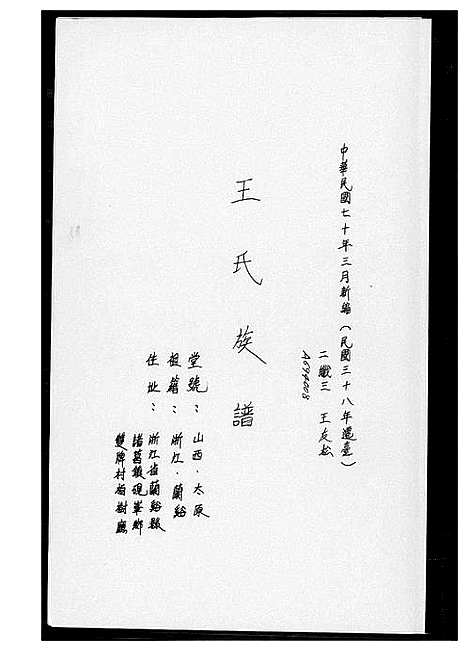 中華民國七十年三月新編（民國三十八年遷臺）
二歲三 王友松
A694008
王氏族譜
堂號：山西．太原
祖籍：浙江．蘭谿
住址：浙江省蘭谿縣
諸葛鎮硯峯鄉
雙牌村柏樹廳